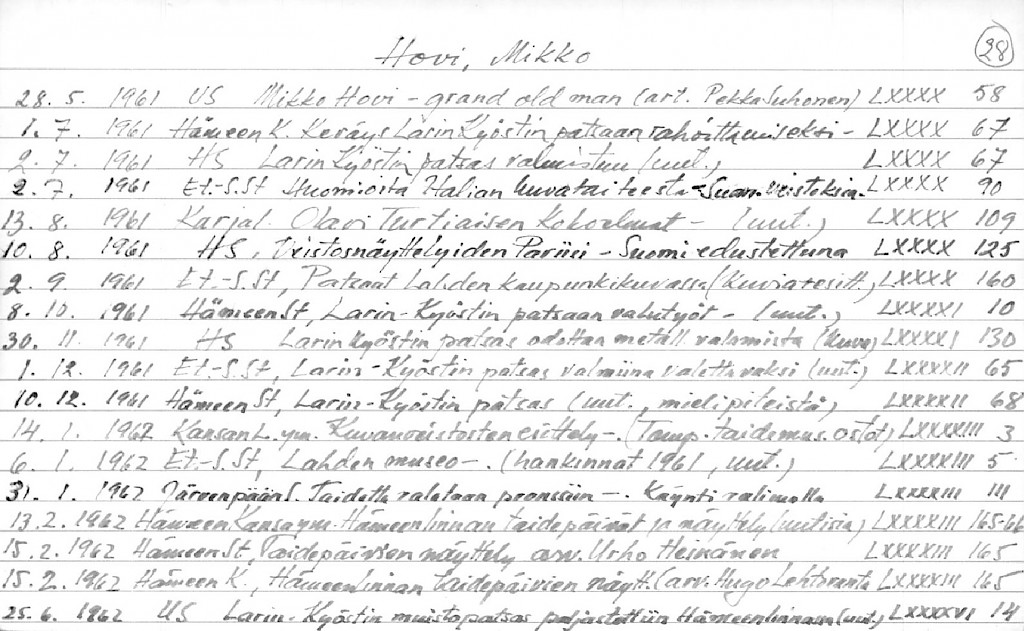 28
Hovi, Mikko
28. 5. 1961 US Mikko Hovi - grand old man (art. Pekka Suhonen) LXXXX 58
1. 7. 1961 Hämeen K. Keräys Larin Kyöstin patsaan rahoittamiseksi - LXXXX 67
2. 7. 1961 HS Larin Kyöstin patsas valmistuu (uut.) LXXXX 67
2. 7. 1961 Et.-S.St Huomioita Italian kuvataiteesta - Suom. LXXXX 90
13. 8. 1961 Karjal. Olavi Turtiaisen kokoelmat - (uut.) LXXXX 109
10. 8. 1961 HS, Veistosnäyttelyiden Pariisi - Suomi edustettuna LXXXX 125
2. 9. 1961 Et.-S.St, Patsaat Lahden kaupunkikuvassa (Kuvia esitt.) LXXXX 160
8. 10. 1961 Hämeen St, Larin-Kyöstin patsaan valutyöt - (uut.) LXXXXI 10
30. 11. 1961 HS Larin Kyöstin patsas odottaa metall. valamista (kuva) LXXXXI 130
1. 12. 1961 Et.-S.St, Larin-Kyöstin patsas valmiina valettavaksi (uut.) LXXXXII 65
10. 12. 1961 Hämeen St, Larin-Kyöstin patsas (uut., mielipiteistä) LXXXXII 68
14. 1. 1962 Kansan L. ym. Kuvanveistosten esittely -. (Tamp. taidemus. ostot) LXXXXIII 3
6. 1. 1962 Et.-S.St, Lahden museo -. (hankinnat 1961, uut.) LXXXXIII 5
31. 1. 1962 Järvenpään S. Taidetta valetaan pronssiin -. Käynti valimolla LXXXXIII 111
13. 2. 1962 Hämeen Kansa ym. Hämeenlinnan taidepäivät ja näyttely (uutisia) LXXXXIII 165-66
15. 2. 1962 Hämeen St, Taidepäivien näyttely arv. Urho Heinänen LXXXXIII 165
15. 2. 1962 Hämeen K., Hämeenlinnan taidepäivien näytt. (arv. Hugo Lehtoranta LXXXXIII 165
25. 6. 1962 US Larin-Kyöstin muistopatsas paljastettiin Hämeenlinnassa (uut.) LXXXXVI 14